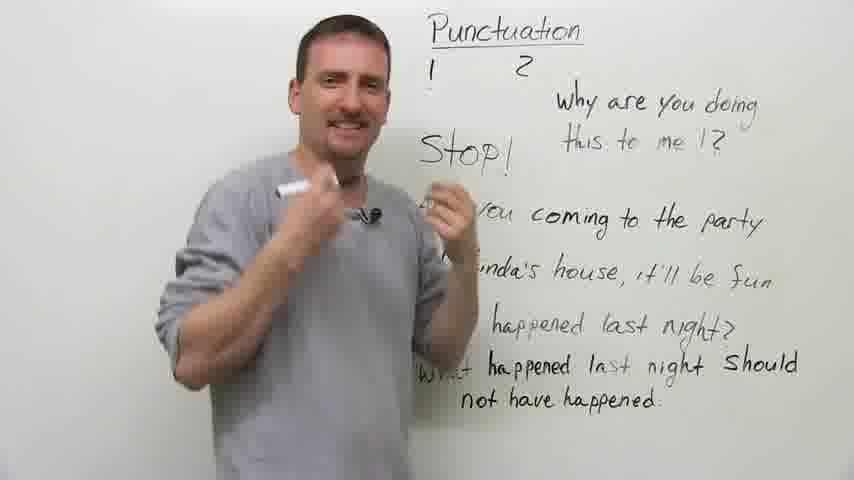 Punctuation
! ?
Why are you doing
this to me !?
Stop!
you coming to the party
house, it'll be fun
happened last night?
What happened last night should
not have happened.